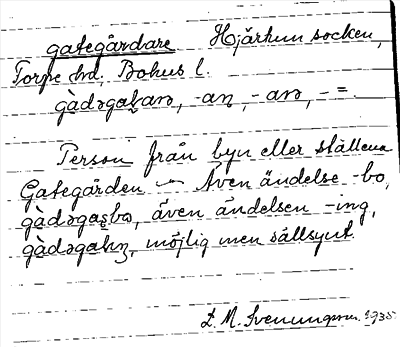 gategårdare Hjärtum socken,
Torpe hd, Bohus l.
gàdəgaʈarə, -aɳ, -arə, -=.
Person från byn eller ställena
Gategården – Även ändelse -bo,
gàdəgaʂbo, även ändelsen -ing,
möjlig men sällsynt.
L. M. Svenungsson 1935